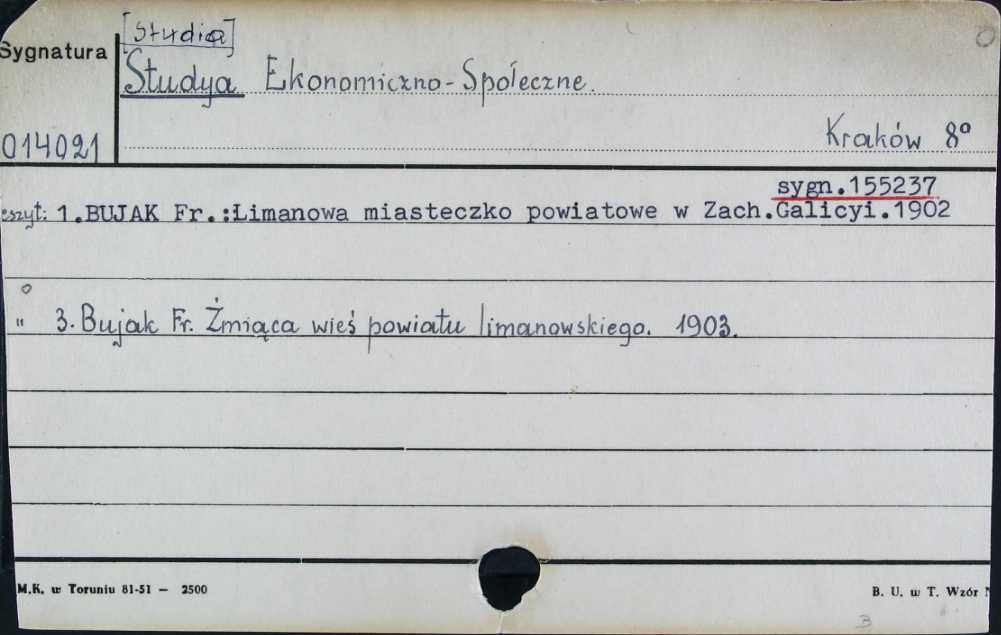 [Studia]
Sygnatura
Studya Ekonomiczno-Społeczne.
014021
Kraków 8°
sygn.155237
eszyt: 1.BUJAK Fr.:Limanowa miasteczko powiatowe w Zach.Galicyi.1902
" 3. Bujak Fr. Żmiąca wieś powiatu limanowskiego. 1903.
M.K. w Toruniu 81-51 — 2500
B. U. w T. Wzór